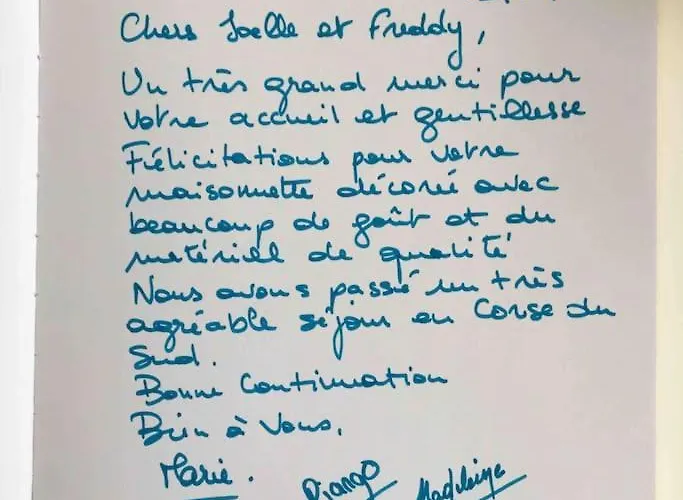 Chers Joelle et Freddy,
Un très grand merci pour
votre accueil et gentillesse
Félicitations pour votre
maisonnette décorée avec
beaucoup de goût et du
matériel de qualité
Nous avons passé un très
agréable séjour en Corse du
Sud.
Bonne Continuation
Bien à Vous.
Marie.
Django
Madeleine